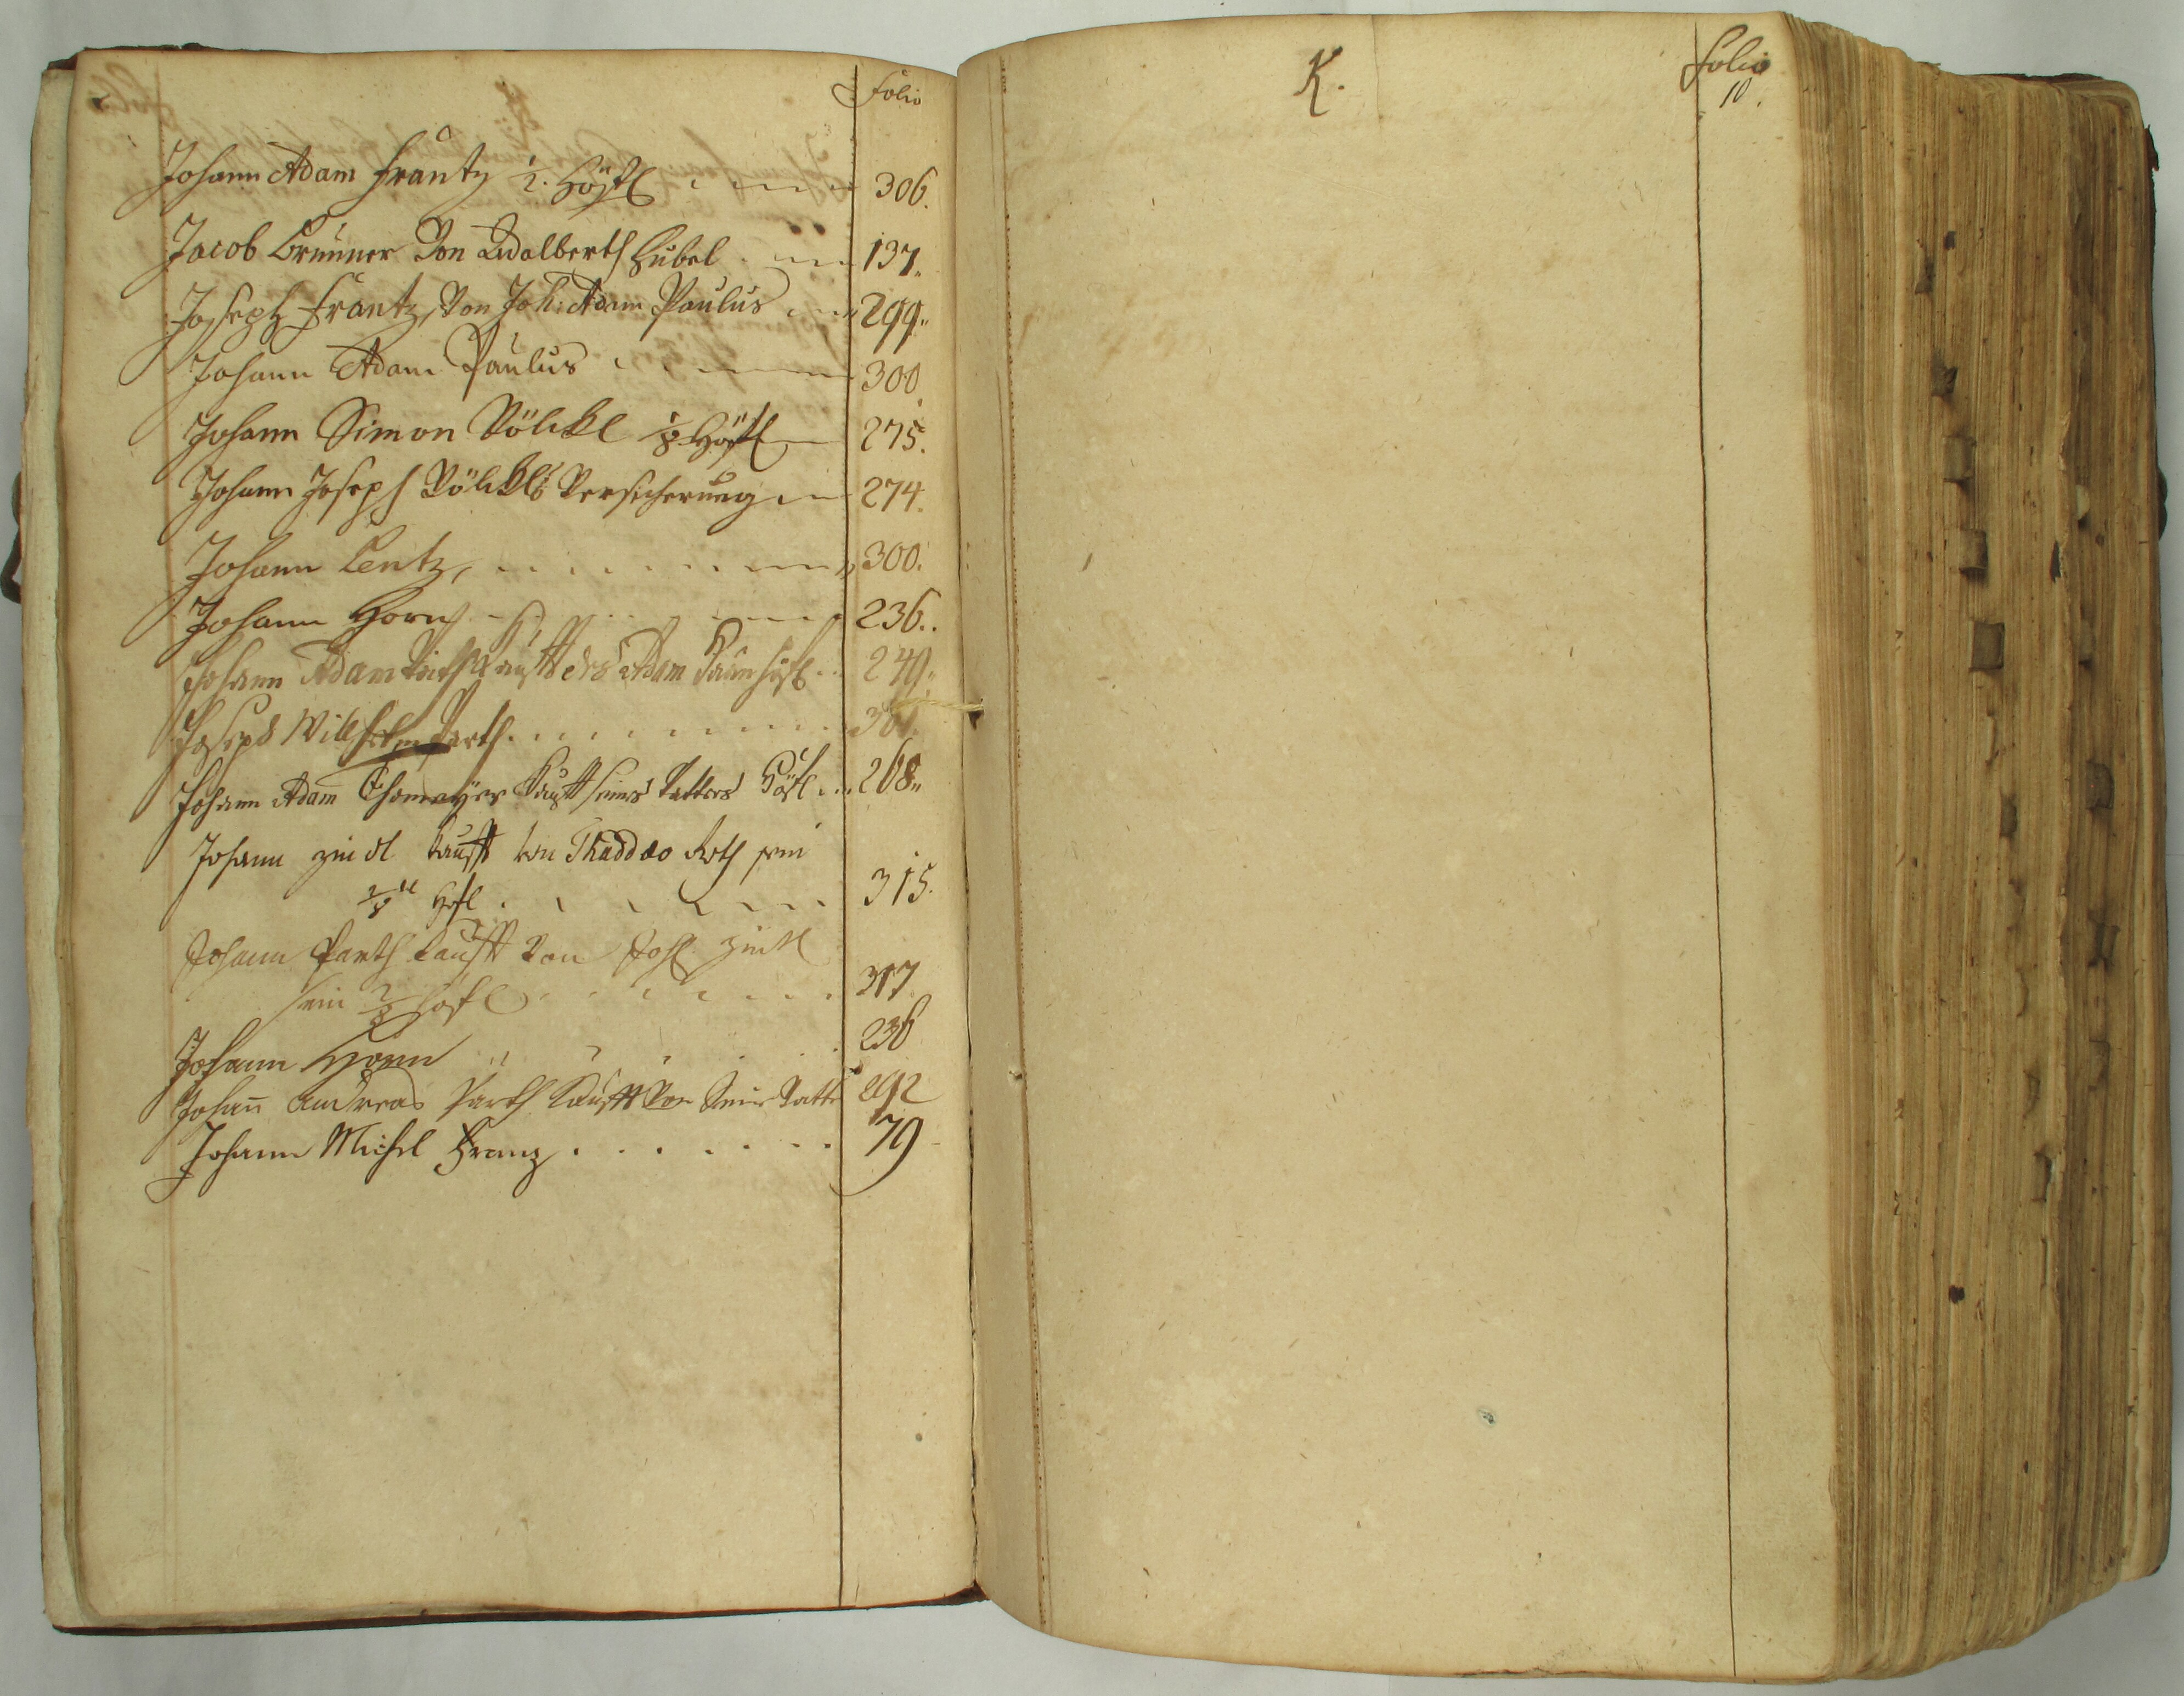 Folio
Johann Adam Frantz ½. Höfl 306.
Jacob Brunner Von Adalberth Hubel 137.
Joseph Frantz, Von Joh: Adam Paulus 299.
Johann Adam Paulus 300
Johann Simon Völckl 1/8 Höfl 275.
Johann Joseph Völckls Versicherung 274.
Johann Lentz, 300.
Johann Horn 236.
Johann Adam kaufft des Adam Höfl 240.
Joseph Wilhelm Parth 301.
Johann Adam Thomayer kaufft seines Vatters Höfl 268.
Johann Zindl kaufft von Thaddæo Roth sein
2/8 Höfl 315.
Johann Parth kaufft Von Joh. Zindl
sein 2/8 Höfl 317
Johann Horn 236
Johañ Andreas Parth Kaufft Von Seine Vatter 292
Johann Michel Franz 79
K.
Folio
10.